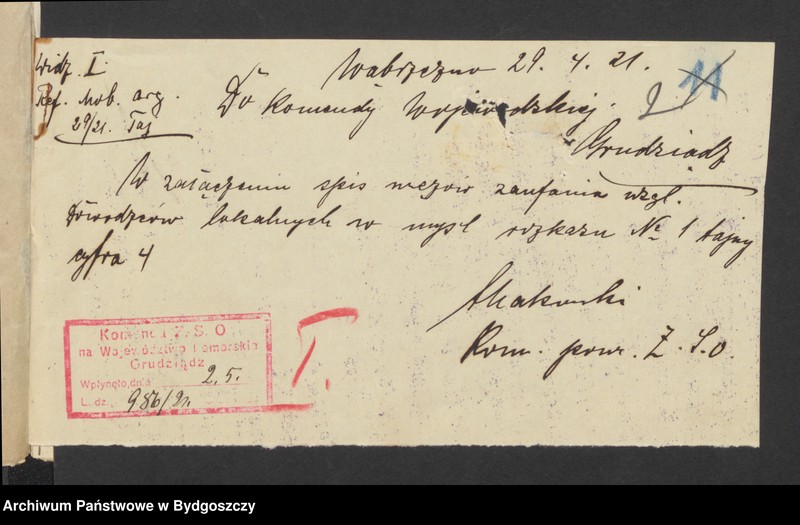 Widz. I.
Wąbrzeźno 29. 4. 21.
11
2
Ref. Mob. org.
29/21. Taj
Do Komendy Wojewódzkiej.
Grudziądz
W załączeniu spis mężów zaufania wzgl.
dowódzców lokalnych w myśl rozkazu № 1 tajny
cyfra 4
Makowski
Kom. pow. Z. S. O.
Komenda Z. S. O
na Województwo Pomorskie
Grudziądz
Wpłynęło, dnia 2. 5.
L. dz. 986/21.
I.
Archiwum Państwowe w Bydgoszczy